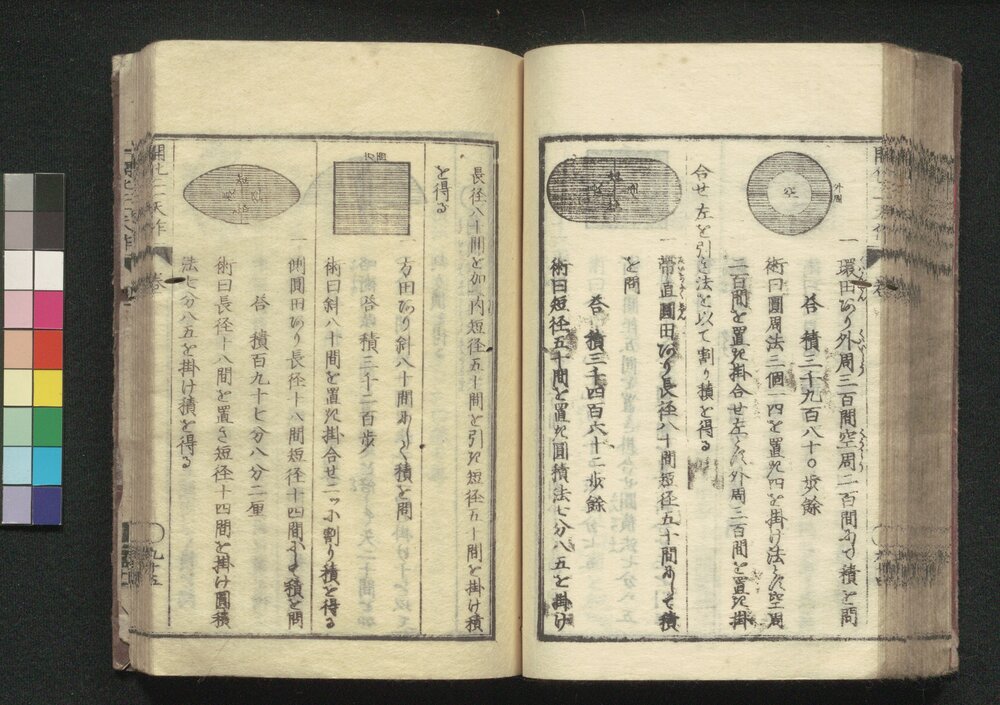 一 環田あり外周三百間空周二百間にして積を問
答 積三千九百八十〇歩餘
術曰圓周法三個一四を置き四を掛け法とし空周
二百間を置き掛合せ左とし外周三百間を置き掛
合せ左を引き法を以て割り積を得る
一 帯直圓田あり長径八十間短径五十間にして積
を問
答 積三千四百六十二歩餘
術曰短径五十間を置き圓積法七分八五を掛け
長径八十間を加内短径五十間を引き短径五十間を掛け積
を得る
一 方田あり斜八十間にして積を問
答 積三千二百歩
術曰斜八十間を置き掛合せ二ッに割り積を得る
一 側圓田あり長径十八間短径十四間にして積を問
答 積百九十七歩八分二厘
術曰長径十八間を置き短径十四間を掛け圓積
法七分八五を掛け積を得る
外周
空
九十五